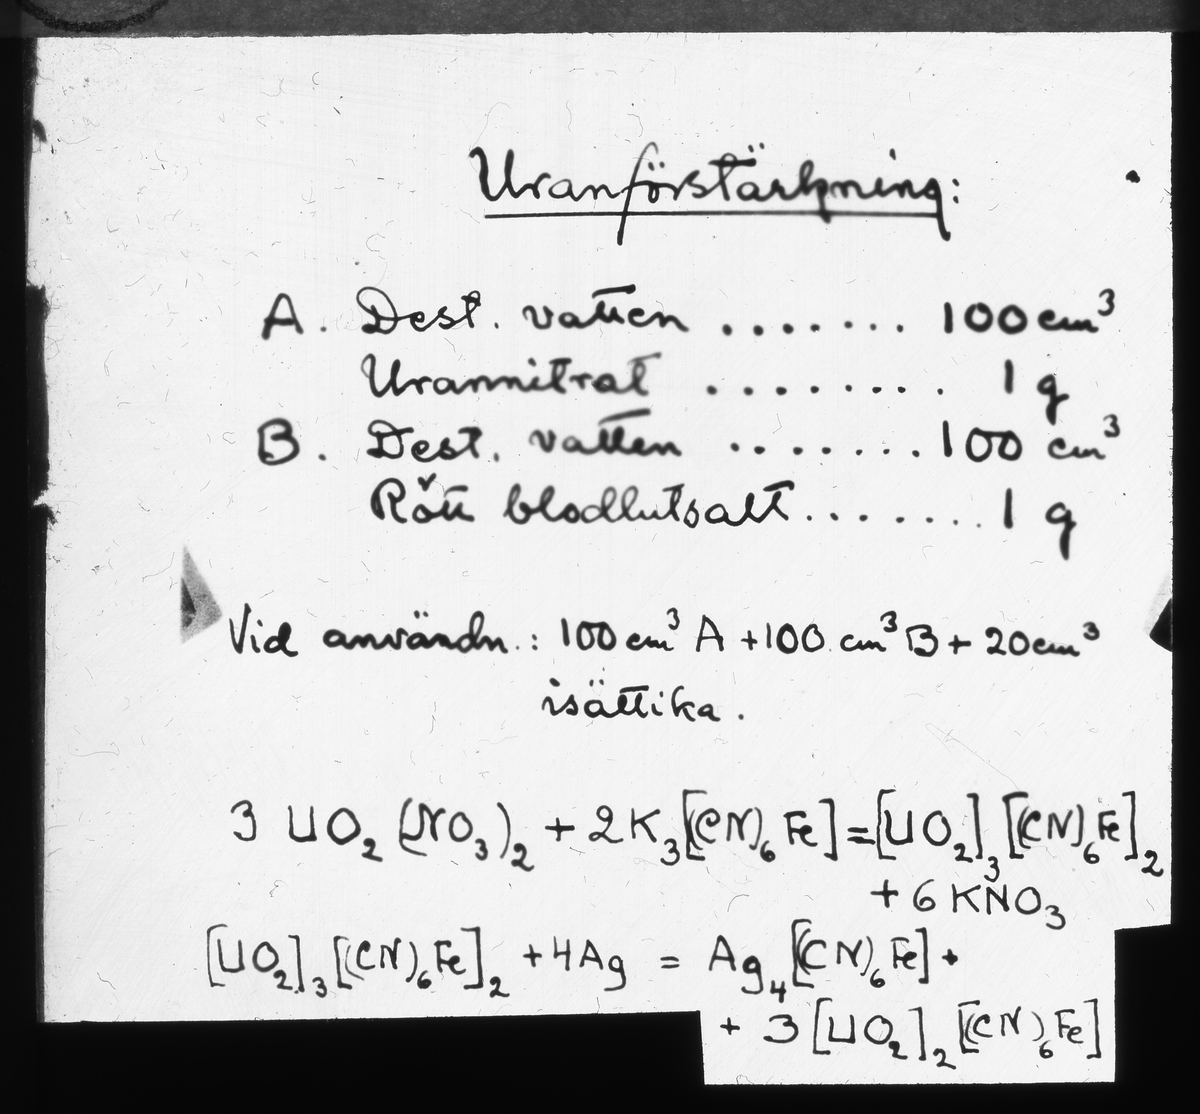 Uranförstärkning:
A. Dest. vatten ....... 100 cm³
Urannitrat ........ 1 g
B. Dest. vatten ....... 100 cm³
Rött blodlutsalt ....... 1 g
Vid användn.: 100 cm³ A + 100 cm³ B + 20 cm³
isättika.
3 UO₂(NO₃)₂ + 2K₃[(CN)₆Fe] = [UO₂]₃[(CN)₆Fe]₂
+ 6 KNO₃
[UO₂]₃[(CN)₆Fe]₂ + 4Ag = Ag₄[(CN)₆Fe] +
+ 3 [UO₂]₂[(CN)₆Fe]